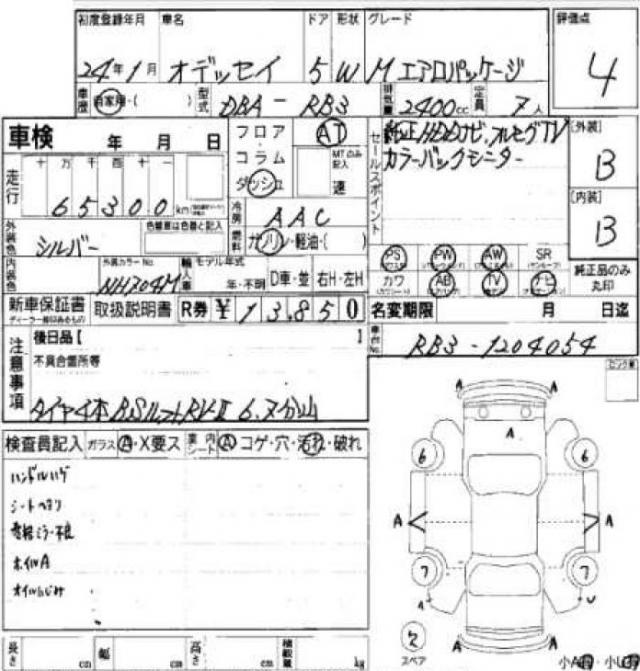 初度登録年月 車名 ドア 形状 グレード 評価点
24年1月 オデッセイ 5 W M エアロパッケージ 4
車歴 自家用・( ) 型式 DBA-RB3 排気量 2400cc 定員 7人
車検 年 月 日
フロア AT
コラム MTのみ記入
ダッシュ 速
セールスポイント 純正HDDナビ、フルセグTV
カラーバックモニター
[外装] B
[内装] B
走行 十 万 千 百 十 一
65300 km
冷房 AAC
燃料 ガソリン・軽油・( )
外装色 シルバー 色替車は色番と記入
内装色 外装カラーNo. NH704M
輸入車 モデル年式 年・不明 D車・並 右H・左H
PS PW AW SR
カワ AB TV ナビ
純正品のみ丸印
新車保証書 取扱説明書 R券 ¥13,850
名変期限 月 日迄
車台No. RB3-1204054
注意事項 後日品[ ]
不具合箇所等
タイヤ4本
検査員記入 ガラス A・X要ス 内 シート A コゲ・穴・汚れ・破れ
ハンドルハゲ
シートヘタリ
ホイルA
オイルにじみ
A A
A
6 6
A A
7 7
A A
スペア
長さ cm 幅 cm 高さ cm 積載量 kg